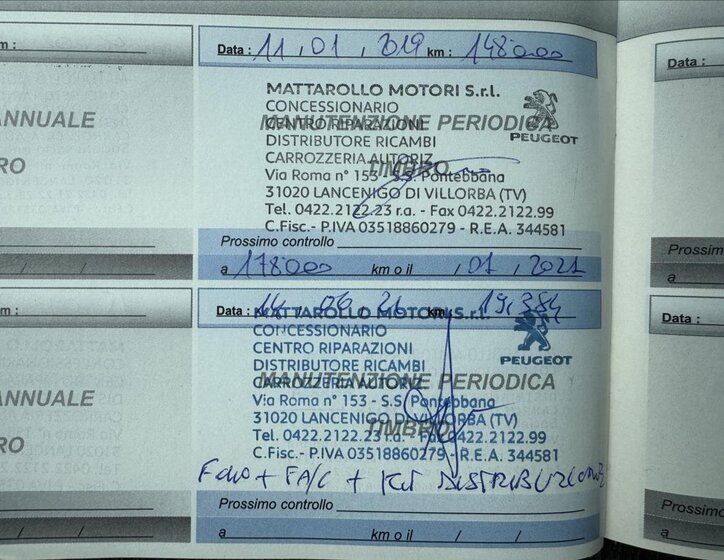 m :
ANNUALE
RO
/ /
Data : 11 , 01 , 2019 km : 148000
MATTAROLLO MOTORI S.r.l.
CONCESSIONARIO
CENTRO RIPARAZIONI
MANUTENZIONE PERIODICA
PEUGEOT
DISTRIBUTORE RICAMBI
CARROZZERIA AUTORIZ.
TIMBRO
Via Roma n° 153 - S.S. Pontebbana
31020 LANCENIGO DI VILLORBA (TV)
Tel. 0422.2122.23 r.a. - Fax 0422.2122.99
C.Fisc.- P.IVA 03518860279 - R.E.A. 344581
Prossimo controllo
a 178000 km o il , 01 , 2021
m :
ANNUALE
RO
/ /
Data : 14 06 21 km
MATTAROLLO MOTORI S.r.l.
CONCESSIONARIO
CENTRO RIPARAZIONI
PEUGEOT
DISTRIBUTORE RICAMBI
MANUTENZIONE PERIODICA
CARROZZERIA AUTORIZ.
Via Roma n° 153 - S.S. Pontebbana
31020 LANCENIGO DI VILLORBA (TV)
TIMBRO
Tel. 0422.2122.23 r.a. - Fax 0422.2122.99
C.Fisc.- P.IVA 03518860279 - R.E.A. 344581
+ FA/C + KIT DISTRIBUZIONE
Prossimo controllo
a km o il / /
Data :
Prossimo
a
Data :
Prossimo
a